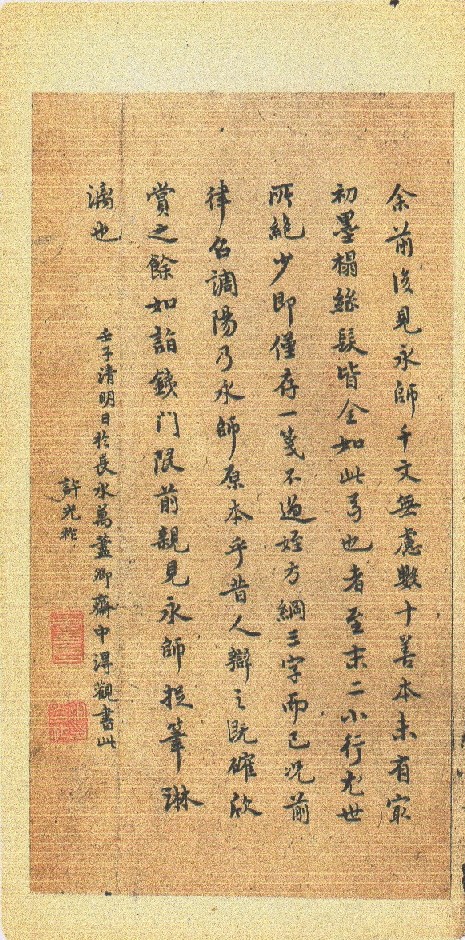 余前後見永師千文無慮數十善本未有宋
初墨榻絲髮皆全如此弓也者至末二小行尤世
所絕少即僅存一箋不過姪方綱三字而已況前
律召調陽乃永師原本乎昔人辯之既確欣
賞之餘如詣鐵門限前親見永師於筆琳
漓也
壬子清明日於長水萬藍卿齋中得觀書此
許光祚